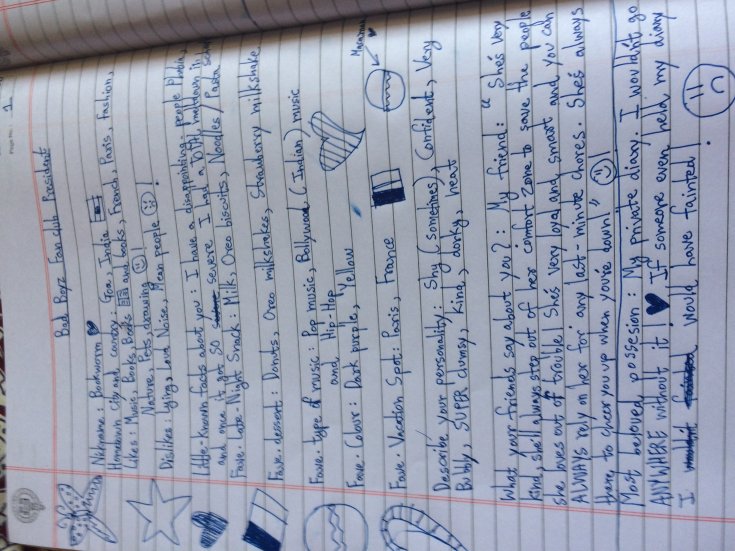 Page No.: 1
Bad Boyz Fan club President
Nickname : Bookworm
Hometown city and country : Goa, India
Likes : Music, Books, Books and books, French, Paris, Fashion,
Nature, Pets, drawing
Dislikes : Lying, Loud Noise, Mean people
Little-known facts about you : I have a disappointing people phobia,
and once it got SO severe I had a TOTAL meltdown in
Fave. Late-Night Snack : Milk, Oreo biscuits, Noodles / Pasta
Fave. dessert : Donuts, Oreo milkshakes, Strawberry milkshake
Fave. type of music : Pop music, Bollywood (Indian) music
and Hip-Hop
Fave. Colour : Dark purple, Yellow
Macaroon
Fave. Vacation Spot : Paris, France
Describe your personality : Shy (sometimes), Confident, Very
Bubbly, SUPER clumsy, Kind, dorky, neat
What your friends say about you? : My friend : " She's very
kind, she'll always step out of her comfort zone to save the people
she loves out of trouble! She's very loyal and smart and you can
ALWAYS rely on her for any last-minute chores. She's always
there to cheer you up when you're down! "
Most beloved possesion : My private diary. I wouldn't go
ANYWHERE without it! If someone even held my diary
I would have fainted!